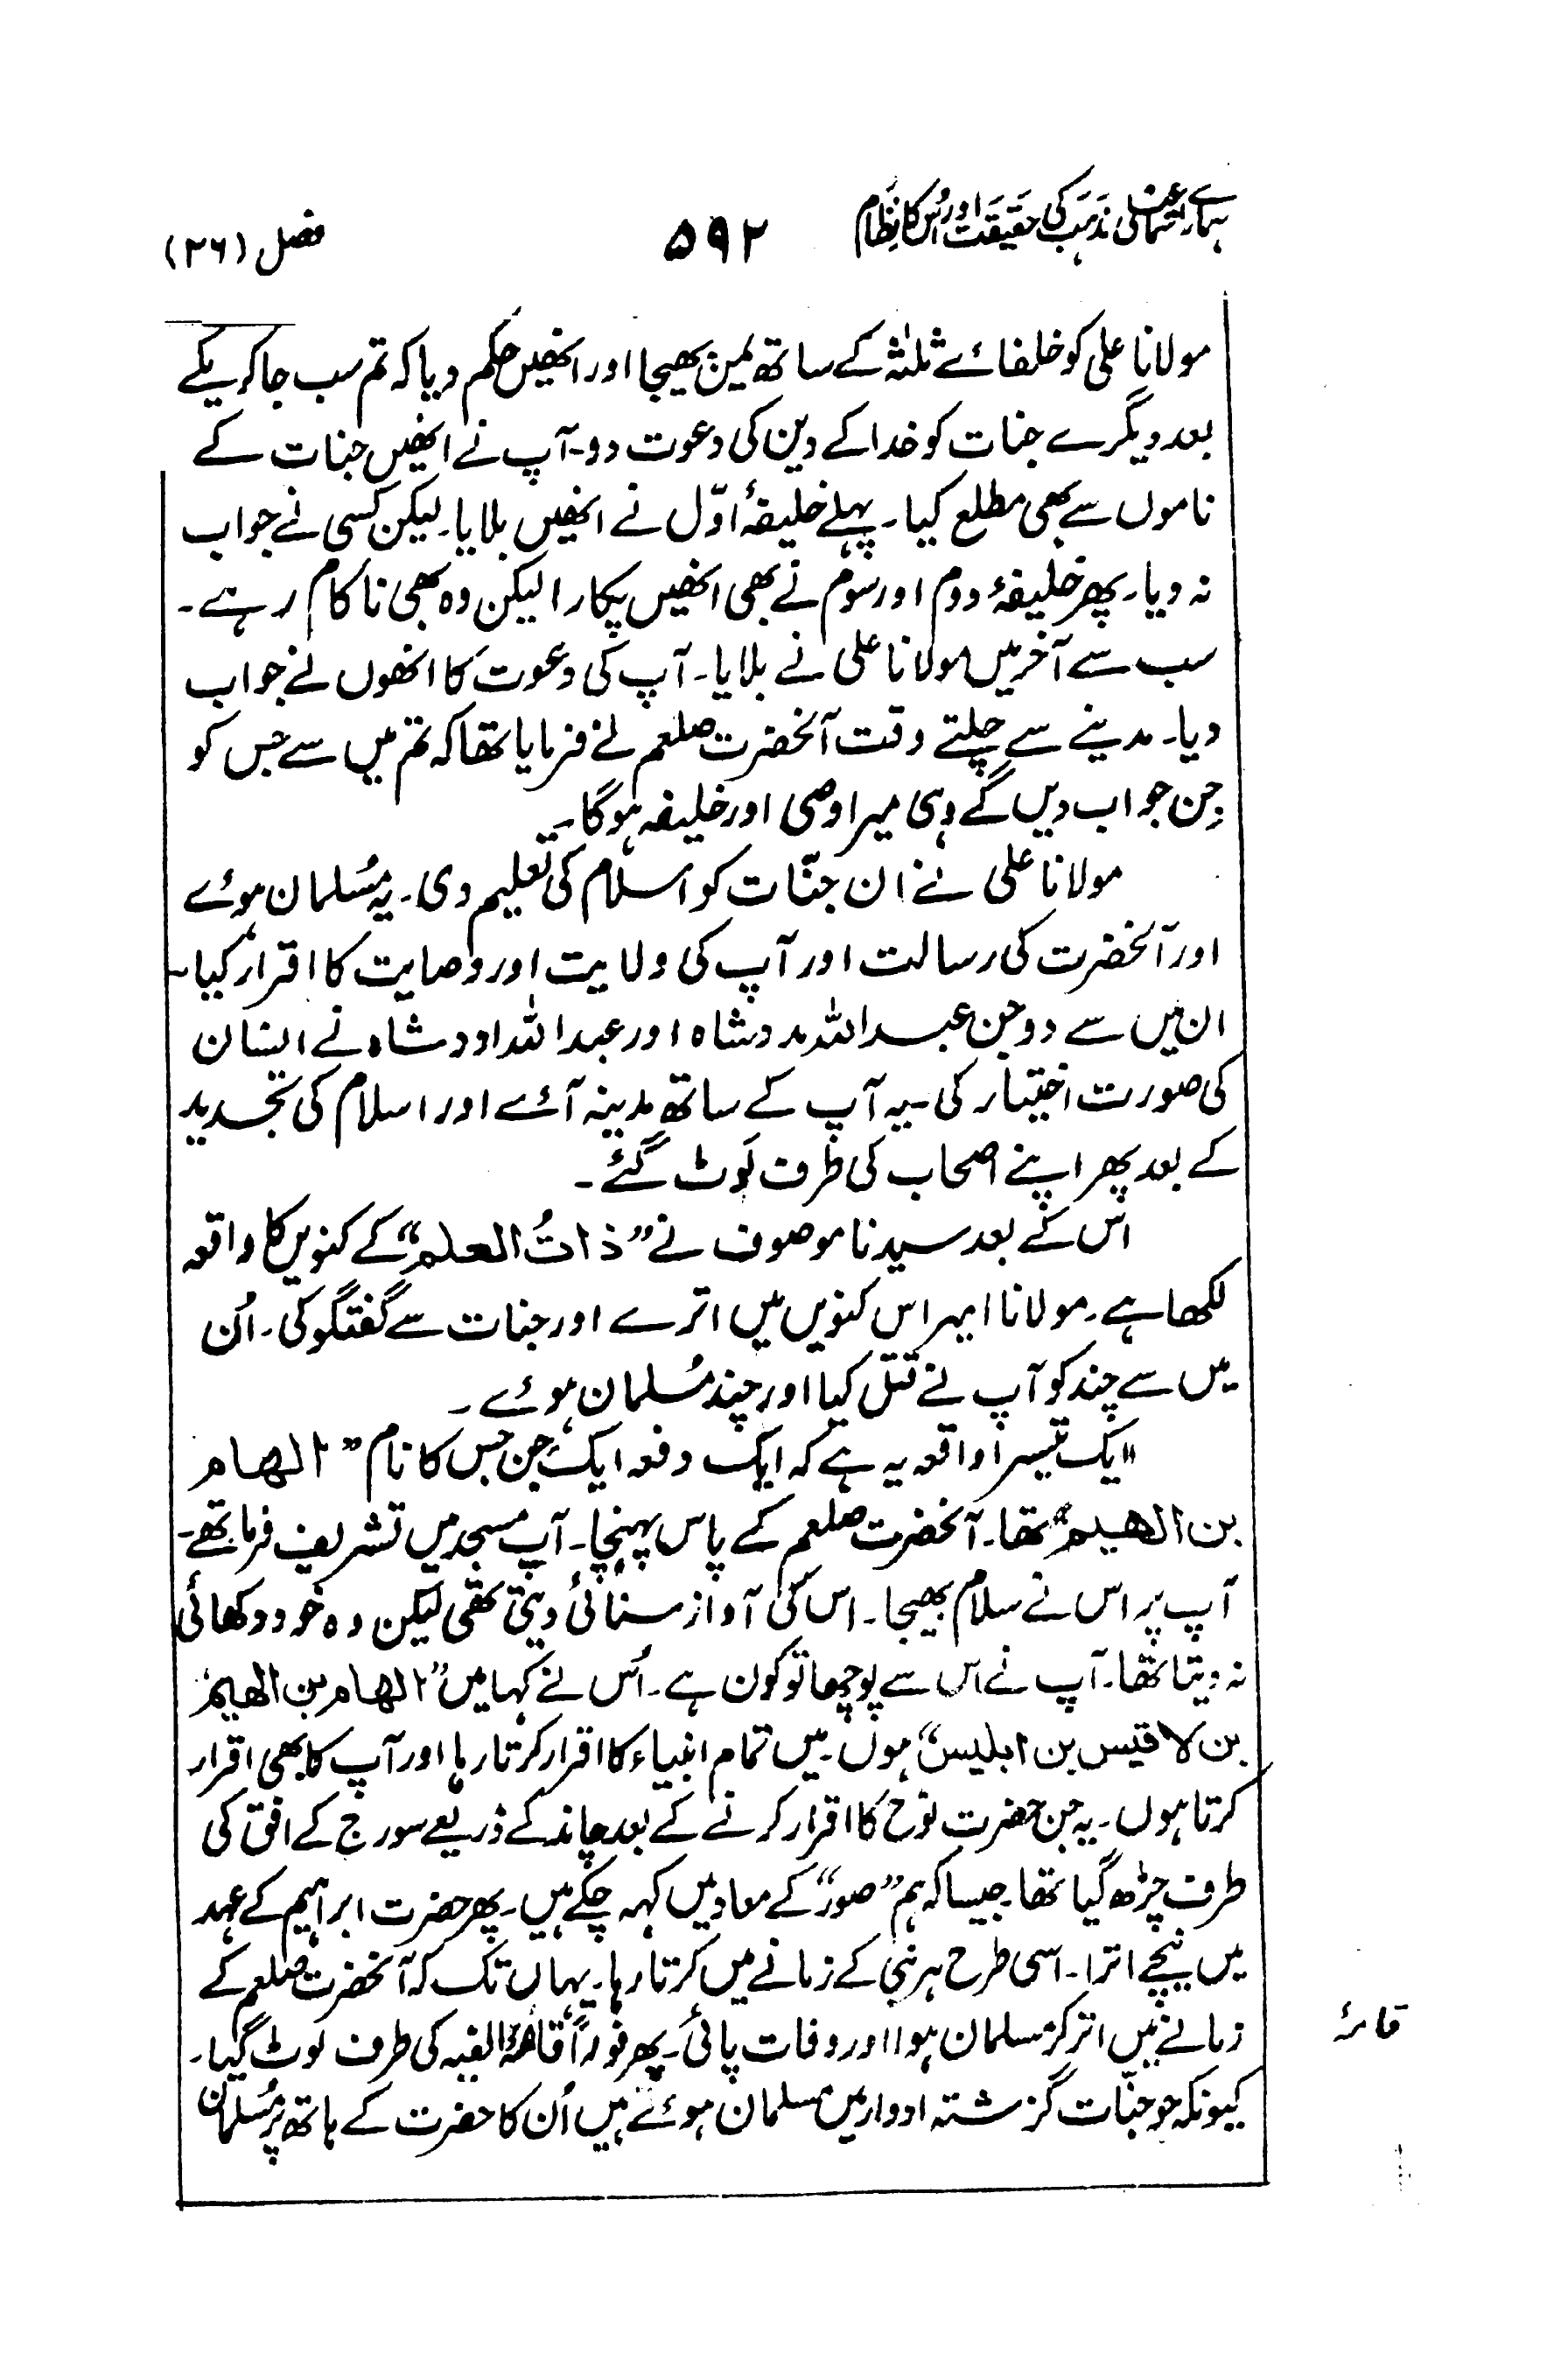 ہمارے اسماعیلی مذہب کی حقیقت اور اس کا نظام ۵۹۲ فصل (۳۶)
مولانا علی کو خلفائے ثلثہ کے ساتھ یمن بھیجا اور انھیں حکم دیا کہ تم سب جا کر یکے
بعد دیگرے جنات کو خدا کے دین کی دعوت دو۔ آپ نے انھیں جنات کے
ناموں سے بھی مطلع کیا۔ پہلے خلیفۂ اوّل نے انھیں بلایا۔ لیکن کسی نے جواب
نہ دیا۔ پھر خلیفۂ دوم اور سوم نے بھی انھیں پکارا لیکن وہ بھی ناکام رہے۔
سب سے آخر میں مولانا علی نے بلایا۔ آپ کی دعوت کا انھوں نے جواب
دیا۔ مدینے سے چلتے وقت آنحضرت صلعم نے فرمایا تھا کہ تم میں سے جس کو
جِن جواب دیں گے وہی میرا وصی اور خلیفہ ہوگا۔
مولانا علی نے ان جنّات کو اسلام کی تعلیم دی۔ یہ مُسلمان ہوئے
اور آنحضرت کی رسالت اور آپ کی ولایت اور وصایت کا اقرار کیا۔
ان میں سے دو جن عبداللہ مردشاہ اور عبداللہ اودشاہ نے انسان
کی صورت اختیار کی۔ یہ آپ کے ساتھ مدینہ آئے اور اسلام کی تجدید
کے بعد پھر اپنے اصحاب کی طرف لَوٹ گئے۔
اس کے بعد سیدنا موصوف نے ”ذاتُ العلم“ کے کنویں کا واقعہ
لکھا ہے۔ مولانا امیر اس کنویں میں اترے اور جنات سے گفتگو کی۔ اُن
میں سے چند کو آپ نے قتل کیا اور چند مُسلمان ہوئے۔
"ایک تیسرا واقعہ یہ ہے کہ ایک دفعہ ایک جِن جس کا نام ”الھام
بن الھیم“ تھا۔ آنحضرت صلعم کے پاس پہنچا۔ آپ مسجد میں تشریف فرما تھے۔
آپ پر اس نے سلام بھیجا۔ اس کی آواز سنائی دیتی تھی لیکن وہ خود دکھائی
نہ دیتا تھا۔ آپ نے اس سے پوچھا تو کون ہے۔ اُس نے کہا میں ”الھام بن الھیم
بن لاقیس بن ابلیس“ ہوں۔ میں تمام انبیاء کا اقرار کرتا رہا اور آپ کا بھی اقرار
کرتا ہوں۔ یہ جن حضرت نوح کا اقرار کرنے کے بعد چاند کے ذریعے سورج کے افق کی
طرف چڑھ گیا تھا۔ جیسا کہ ہم ”صور“ کے معاد میں کہہ چکے ہیں۔ پھر حضرت ابراہیم کے عہد
میں نیچے اترا۔ اسی طرح ہر نبی کے زمانے میں کرتا رہا۔ یہاں تک کہ آنحضرت صلعم کے
زمانے میں اتر کر مسلمان ہوا اور وفات پائی۔ پھر فوراً الفیہ کی طرف لوٹ گیا۔
قائمۂ
کیونکہ جو جنّات گزشتہ ادوار میں مسلمان ہوئے ہیں اُن کا حضرت کے ہاتھ پر مُسلمان